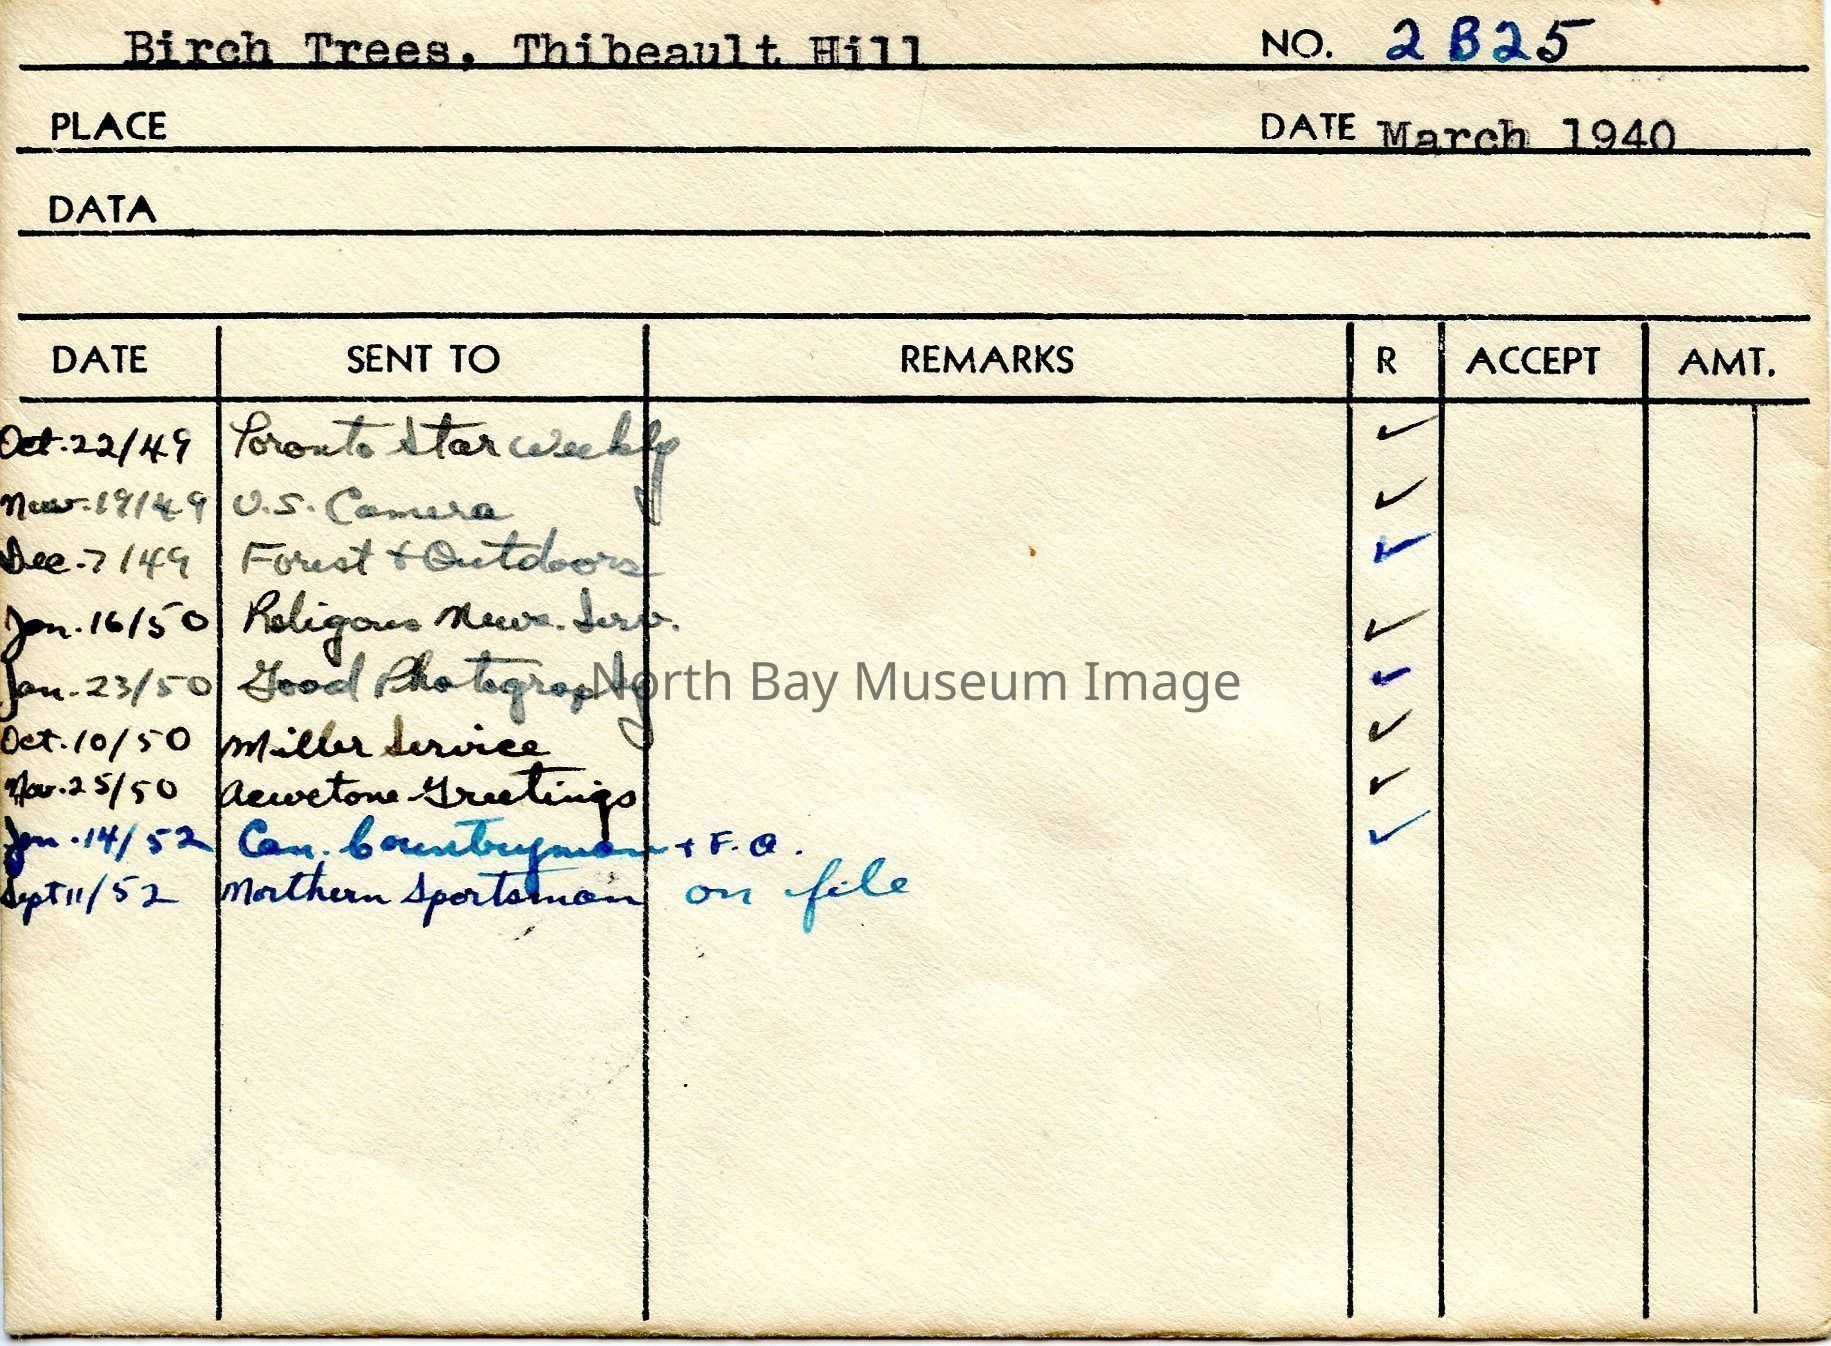 Birch Trees, Thibeault Hill NO. 2B25
PLACE DATE March 1940
DATA
DATE SENT TO REMARKS R ACCEPT AMT.
Oct. 22/49 Toronto Star Weekly ✓
Nov. 19/49 U.S. Camera ✓
Dec. 7/49 Forest + Outdoors ✓
Jan. 16/50 Religous News. Serv. ✓
Jan. 23/50 Good Photography ✓
North Bay Museum Image
Oct. 10/50 Miller Service ✓
Nov. 25/50 Greetings ✓
Jan. 14/52 Can. Countryman + F. O. ✓
Sept 11/52 Northern Sportsman on file